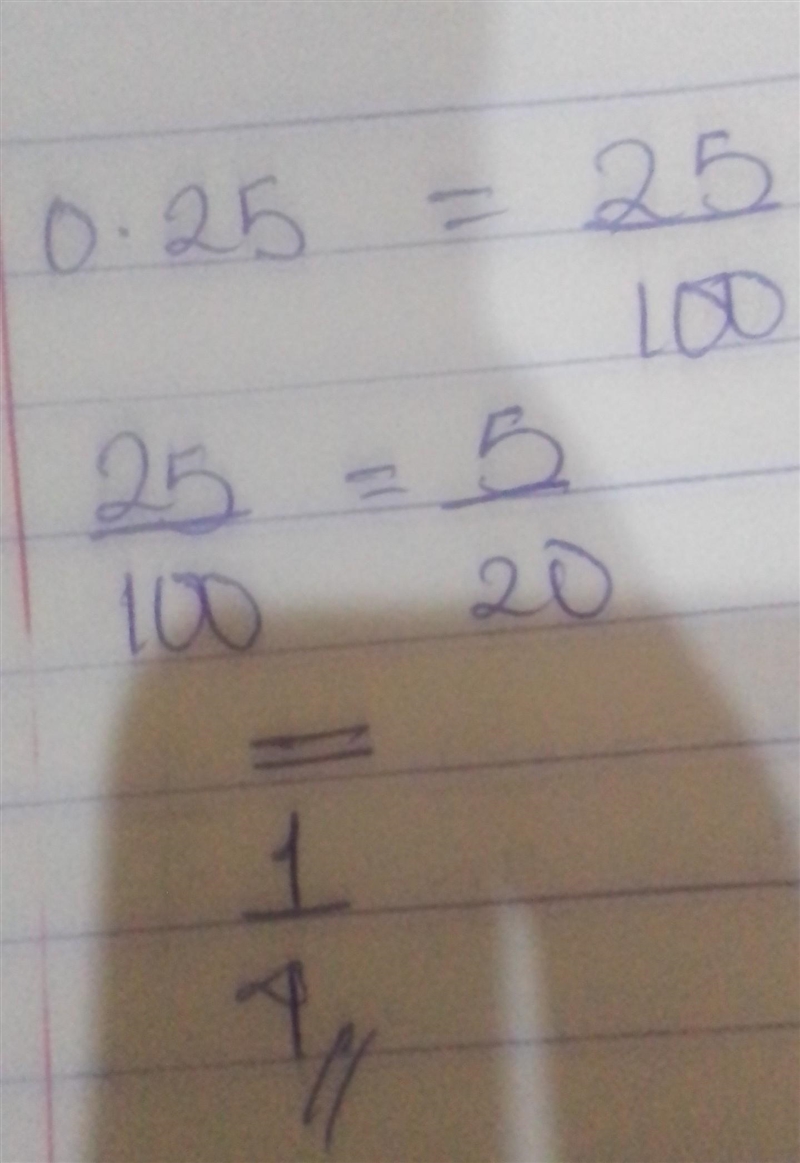 0.25 = 25/100
25/100 = 5/20
=
1/4 //